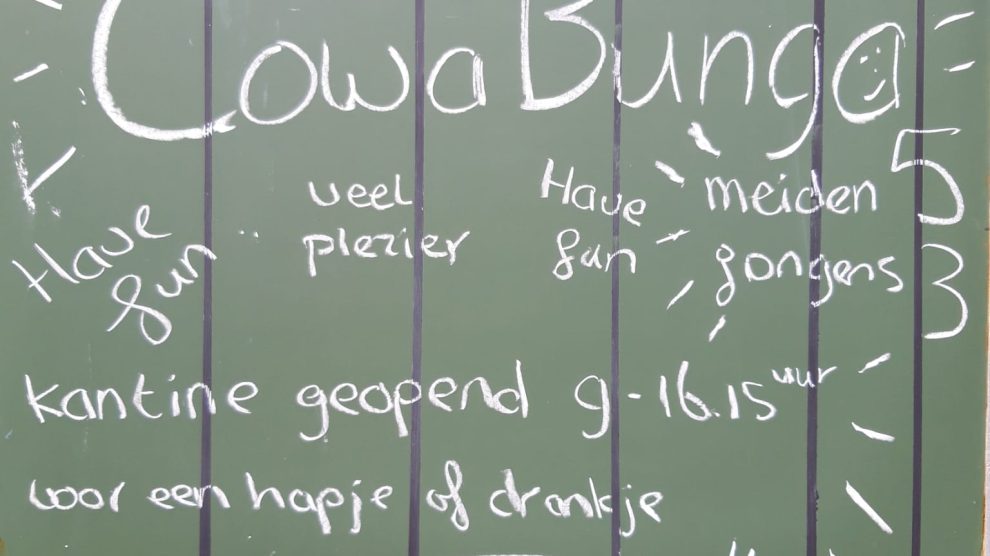 CowaBunga
Have fun
veel plezier
Have fun
meiden 5
jongens 3
kantine geopend 9-16.15 uur
voor een hapje of drankje